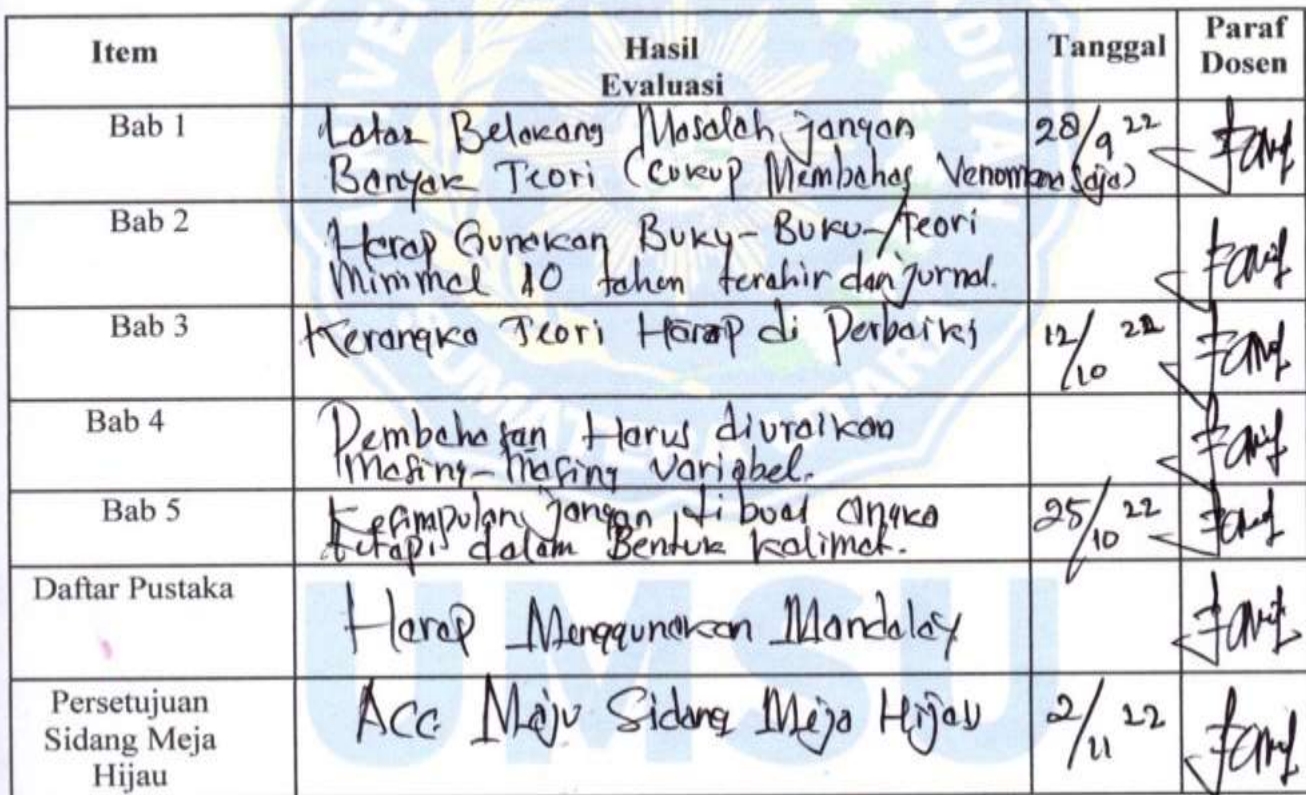 Item Hasil Evaluasi Tanggal Paraf Dosen
Bab 1 Latar Belakang Masalah jangan 28/9 22
Banyak Teori (Cukup Membahas Venomena saja)
Bab 2 Harap Gunakan Buku-Buku/Teori
Minimal 10 tahun terahir dan Jurnal.
Bab 3 Kerangka Teori Harap di Perbaiki 12/10 22
Bab 4 Pembahasan Harus diuraikan
Masing-Masing Variabel.
Bab 5 Kesimpulan jangan di buat angka 25/10 22
tetapi dalam Bentuk kalimat.
Daftar Pustaka Harap Menggunakan Mandalay
Persetujuan Sidang Meja Hijau ACC Maju Sidang Meja Hijau 2/11 22
UMSU